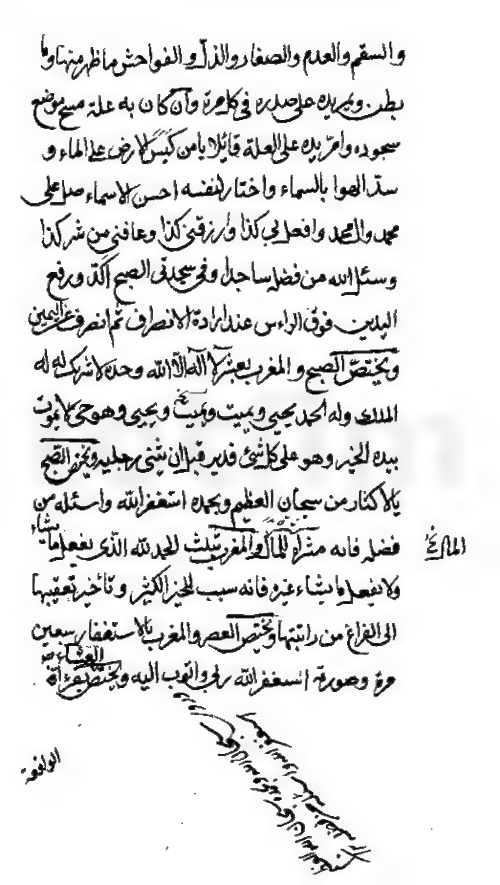 والسقم والعدم والصغار والذل والفواحش ما ظهر منها وما
بطن ويمر يده على صدره في كل مرة وان كان به علة مسح موضع
سجوده وامر يده على العلة قائلا يا من كبس الارض على الماء و
سد الهوا بالسماء واختار لنفسه احسن الاسماء صل على
محمد وال محمد وافعل بي كذا وارزقني كذا وعافني من شر كذا
وسئل الله من فضله ساجدا وفي سجدتي الصبح اكد ورفع
اليدين فوق الراس عند ارادة الانصراف ثم انصرف عن اليمين
ويختص الصبح والمغرب بعشر لا اله الا الله وحده لا شريك له له
الملك وله الحمد يحيي ويميت ويميت ويحيي وهو حي لا يموت
بيده الخير وهو على كل شئ قدير قبل ان يثني رجليه ويختص الصبح
بالاكثار من سبحان الله العظيم وبحمده استغفر الله واسئله من
فضله فانه مثراة للمال والمغرب بثلث الحمد لله الذي يفعل ما يشاء
ولا يفعل ما يشاء غيره فانه سبب للخير الكثير وتأخير تعقيبها
الى الفراغ من راتبتها ويختص العصر والمغرب بالاستغفار سبعين
مرة وصورته استغفر الله ربي واتوب اليه ويختص العشاء بقراءة
الواقعة